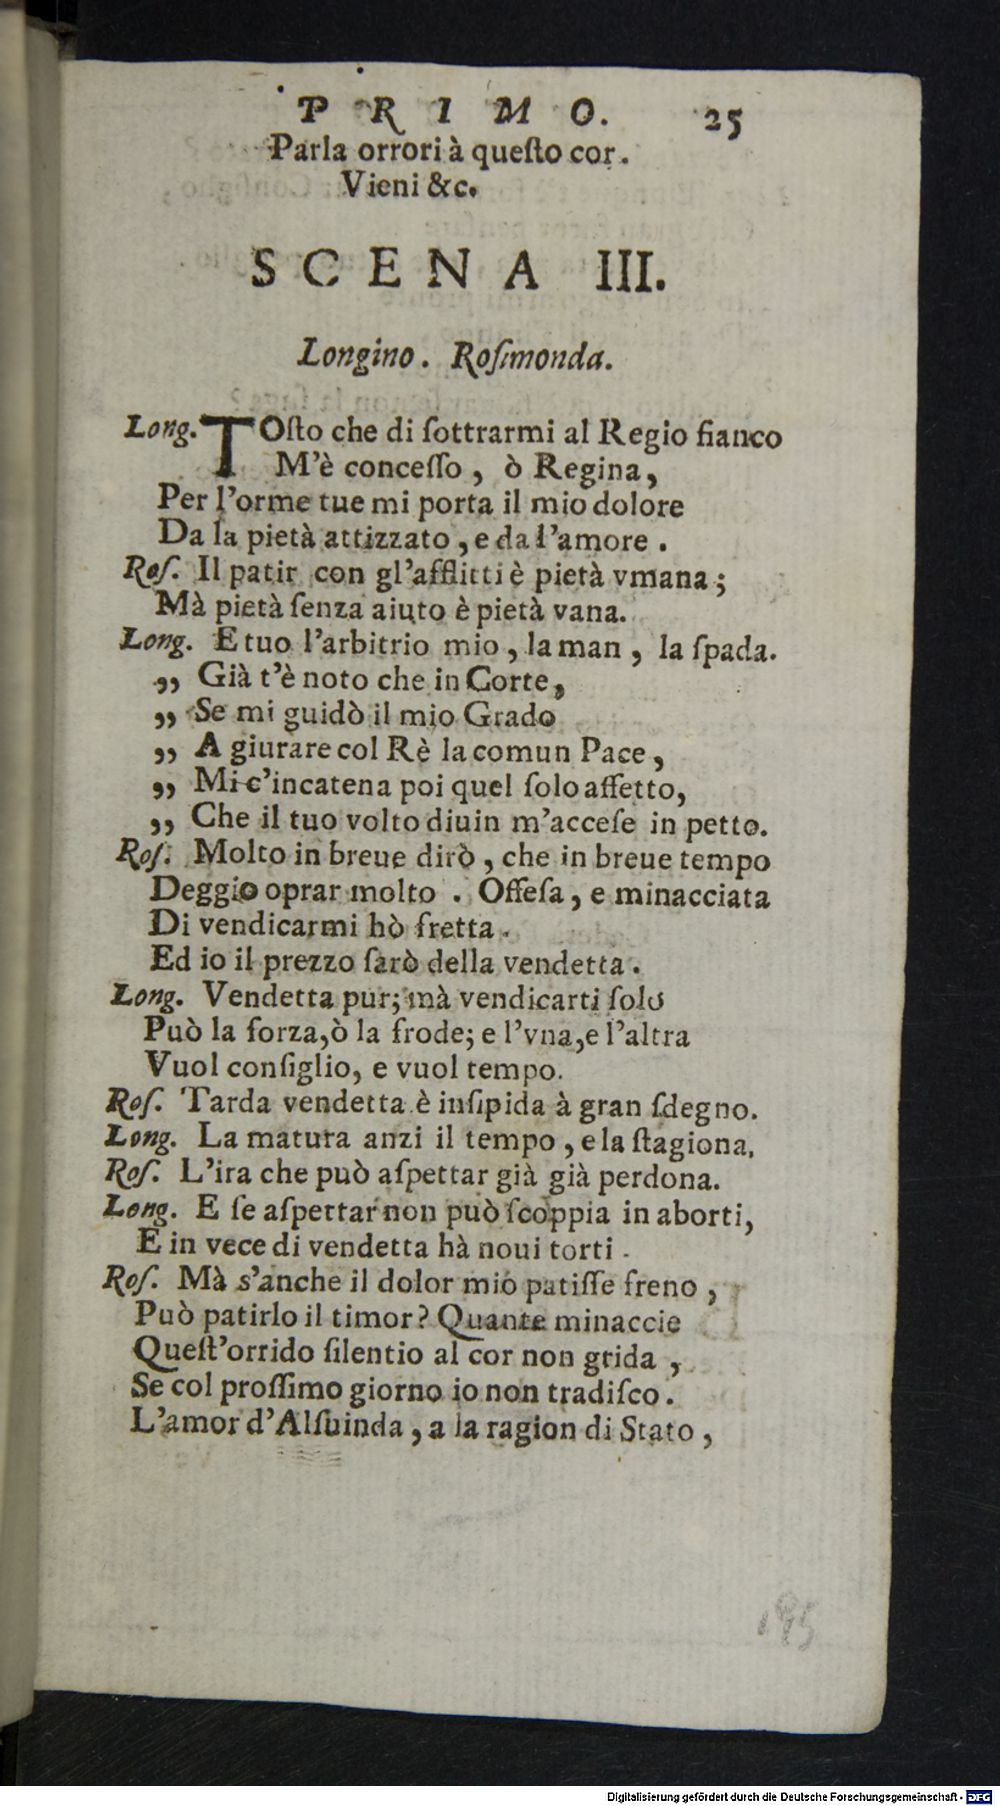 PRIMO. 25
Parla orrori à queſto cor.
Vieni &c.
SCENA III.
Longino. Roſimonda.
Long. TOſto che di ſottrarmi al Regio fianco
M'è conceſſo, ò Regina,
Per l'orme tue mi porta il mio dolore
Da la pietà attizzato, e da l'amore.
Roſ. Il patir con gl'afflitti è pietà vmana;
Mà pietà ſenza aiuto è pietà vana.
Long. E tuo l'arbitrio mio, la man, la ſpada.
„ Già t'è noto che in Corte,
„ Se mi guidò il mio Grado
„ A giurare col Rè la comun Pace,
„ Mi c'incatena poi quel ſolo affetto,
„ Che il tuo volto diuin m'acceſe in petto.
Roſ. Molto in breue dirò, che in breue tempo
Deggio oprar molto. Offeſa, e minacciata
Di vendicarmi hò fretta.
Ed io il prezzo ſarò della vendetta.
Long. Vendetta pur; mà vendicarti ſolo
Può la forza, ò la frode; e l'vna, e l'altra
Vuol conſiglio, e vuol tempo.
Roſ. Tarda vendetta è inſipida à gran ſdegno.
Long. La matura anzi il tempo, e la ſtagiona.
Roſ. L'ira che può aſpettar già già perdona.
Long. E ſe aſpettar non può ſcoppia in aborti,
E in vece di vendetta hà noui torti.
Roſ. Mà s'anche il dolor mio patiſſe freno,
Può patirlo il timor? Quante minaccie
Queſt'orrido ſilentio al cor non grida,
Se col proſſimo giorno io non tradiſco.
L'amor d'Alſuinda, a la ragion di Stato,
195
Digitalisierung gefördert durch die Deutsche Forschungsgemeinschaft - DFG